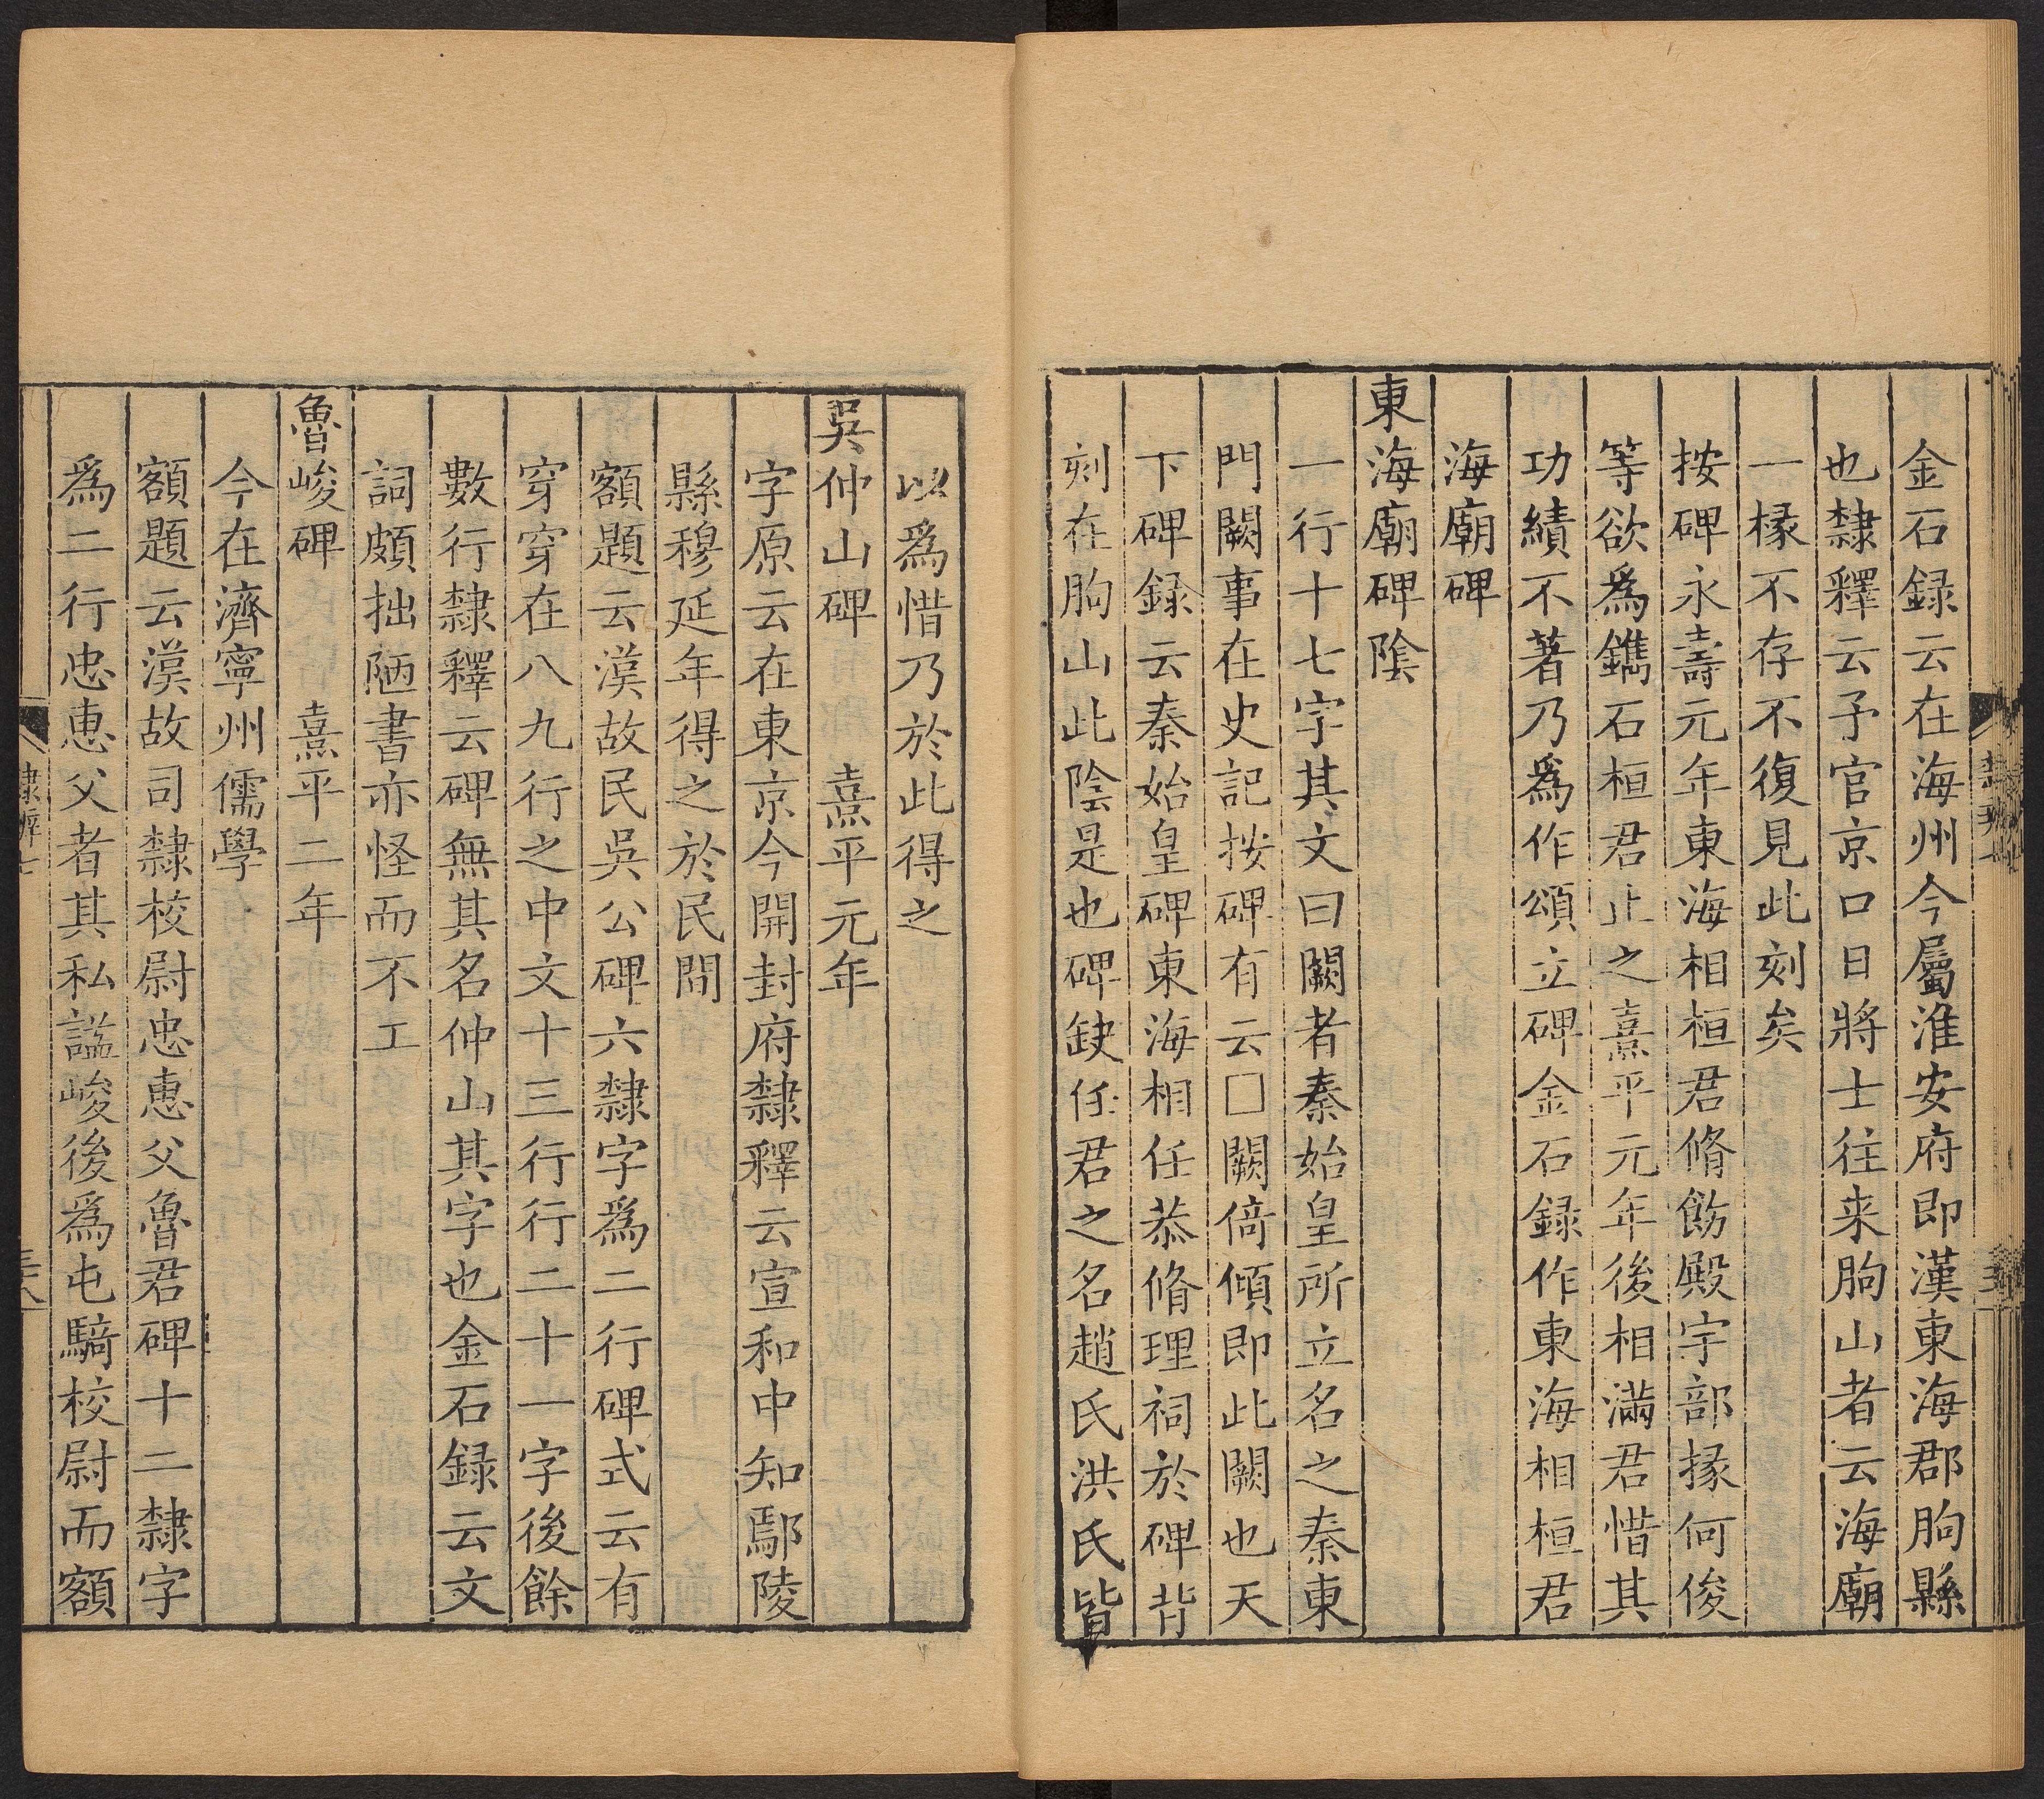 金石録云在海州今屬淮安府即漢東海郡朐縣
也隸釋云予官京口日將士往来朐山者云海廟
一椽不存不復見此刻矣
按碑永壽元年東海相桓君脩飭殿宇部掾何俊
等欲爲鐫石桓君止之熹平元年後相滿君惜其
功績不著乃爲作頌立碑金石録作東海相桓君
海廟碑
東海廟碑陰
一行十七字其文曰闕者秦始皇所立名之秦東
門闕事在史記按碑有云□闕倚傾即此闕也天
下碑録云秦始皇碑東海相任恭脩理祠於碑背
刻在朐山此陰是也碑缺任君之名趙氏洪氏皆
以爲惜乃於此得之
吳仲山碑 熹平元年
字原云在東京今開封府隸釋云宣和中知鄢陵
縣穆延年得之於民間
額題云漢故民吳公碑六隸字爲二行碑式云有
穿穿在八九行之中文十三行行二十一字後餘
數行隸釋云碑無其名仲山其字也金石録云文
詞頗拙陋書亦怪而不工
魯峻碑 熹平二年
今在濟寧州儒學
額題云漢故司隸校尉忠惠父魯君碑十二隸字
爲二行忠惠父者其私諡峻後爲屯騎校尉而額
隸辨七
三六